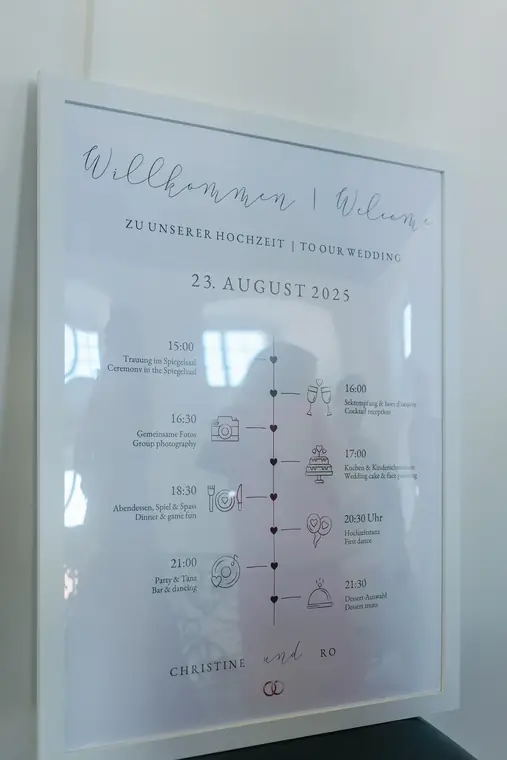 Willkommen | Welcome
ZU UNSERER HOCHZEIT | TO OUR WEDDING
23. AUGUST 2025
15:00
Trauung im Spiegelsaal
Ceremony in the Spiegelsaal
16:00
Sektempfang & hors d'oeuvre
Cocktail reception
16:30
Gemeinsame Fotos
Group photography
17:00
Kuchen &
Wedding cake & face painting
18:30
Abendessen, Spiel & Spass
Dinner & game fun
20:30 Uhr
Hochzeitstanz
First dance
21:00
Party & Tanz
Bar & dancing
21:30
Dessert-Auswahl
Dessert
CHRISTINE und RO